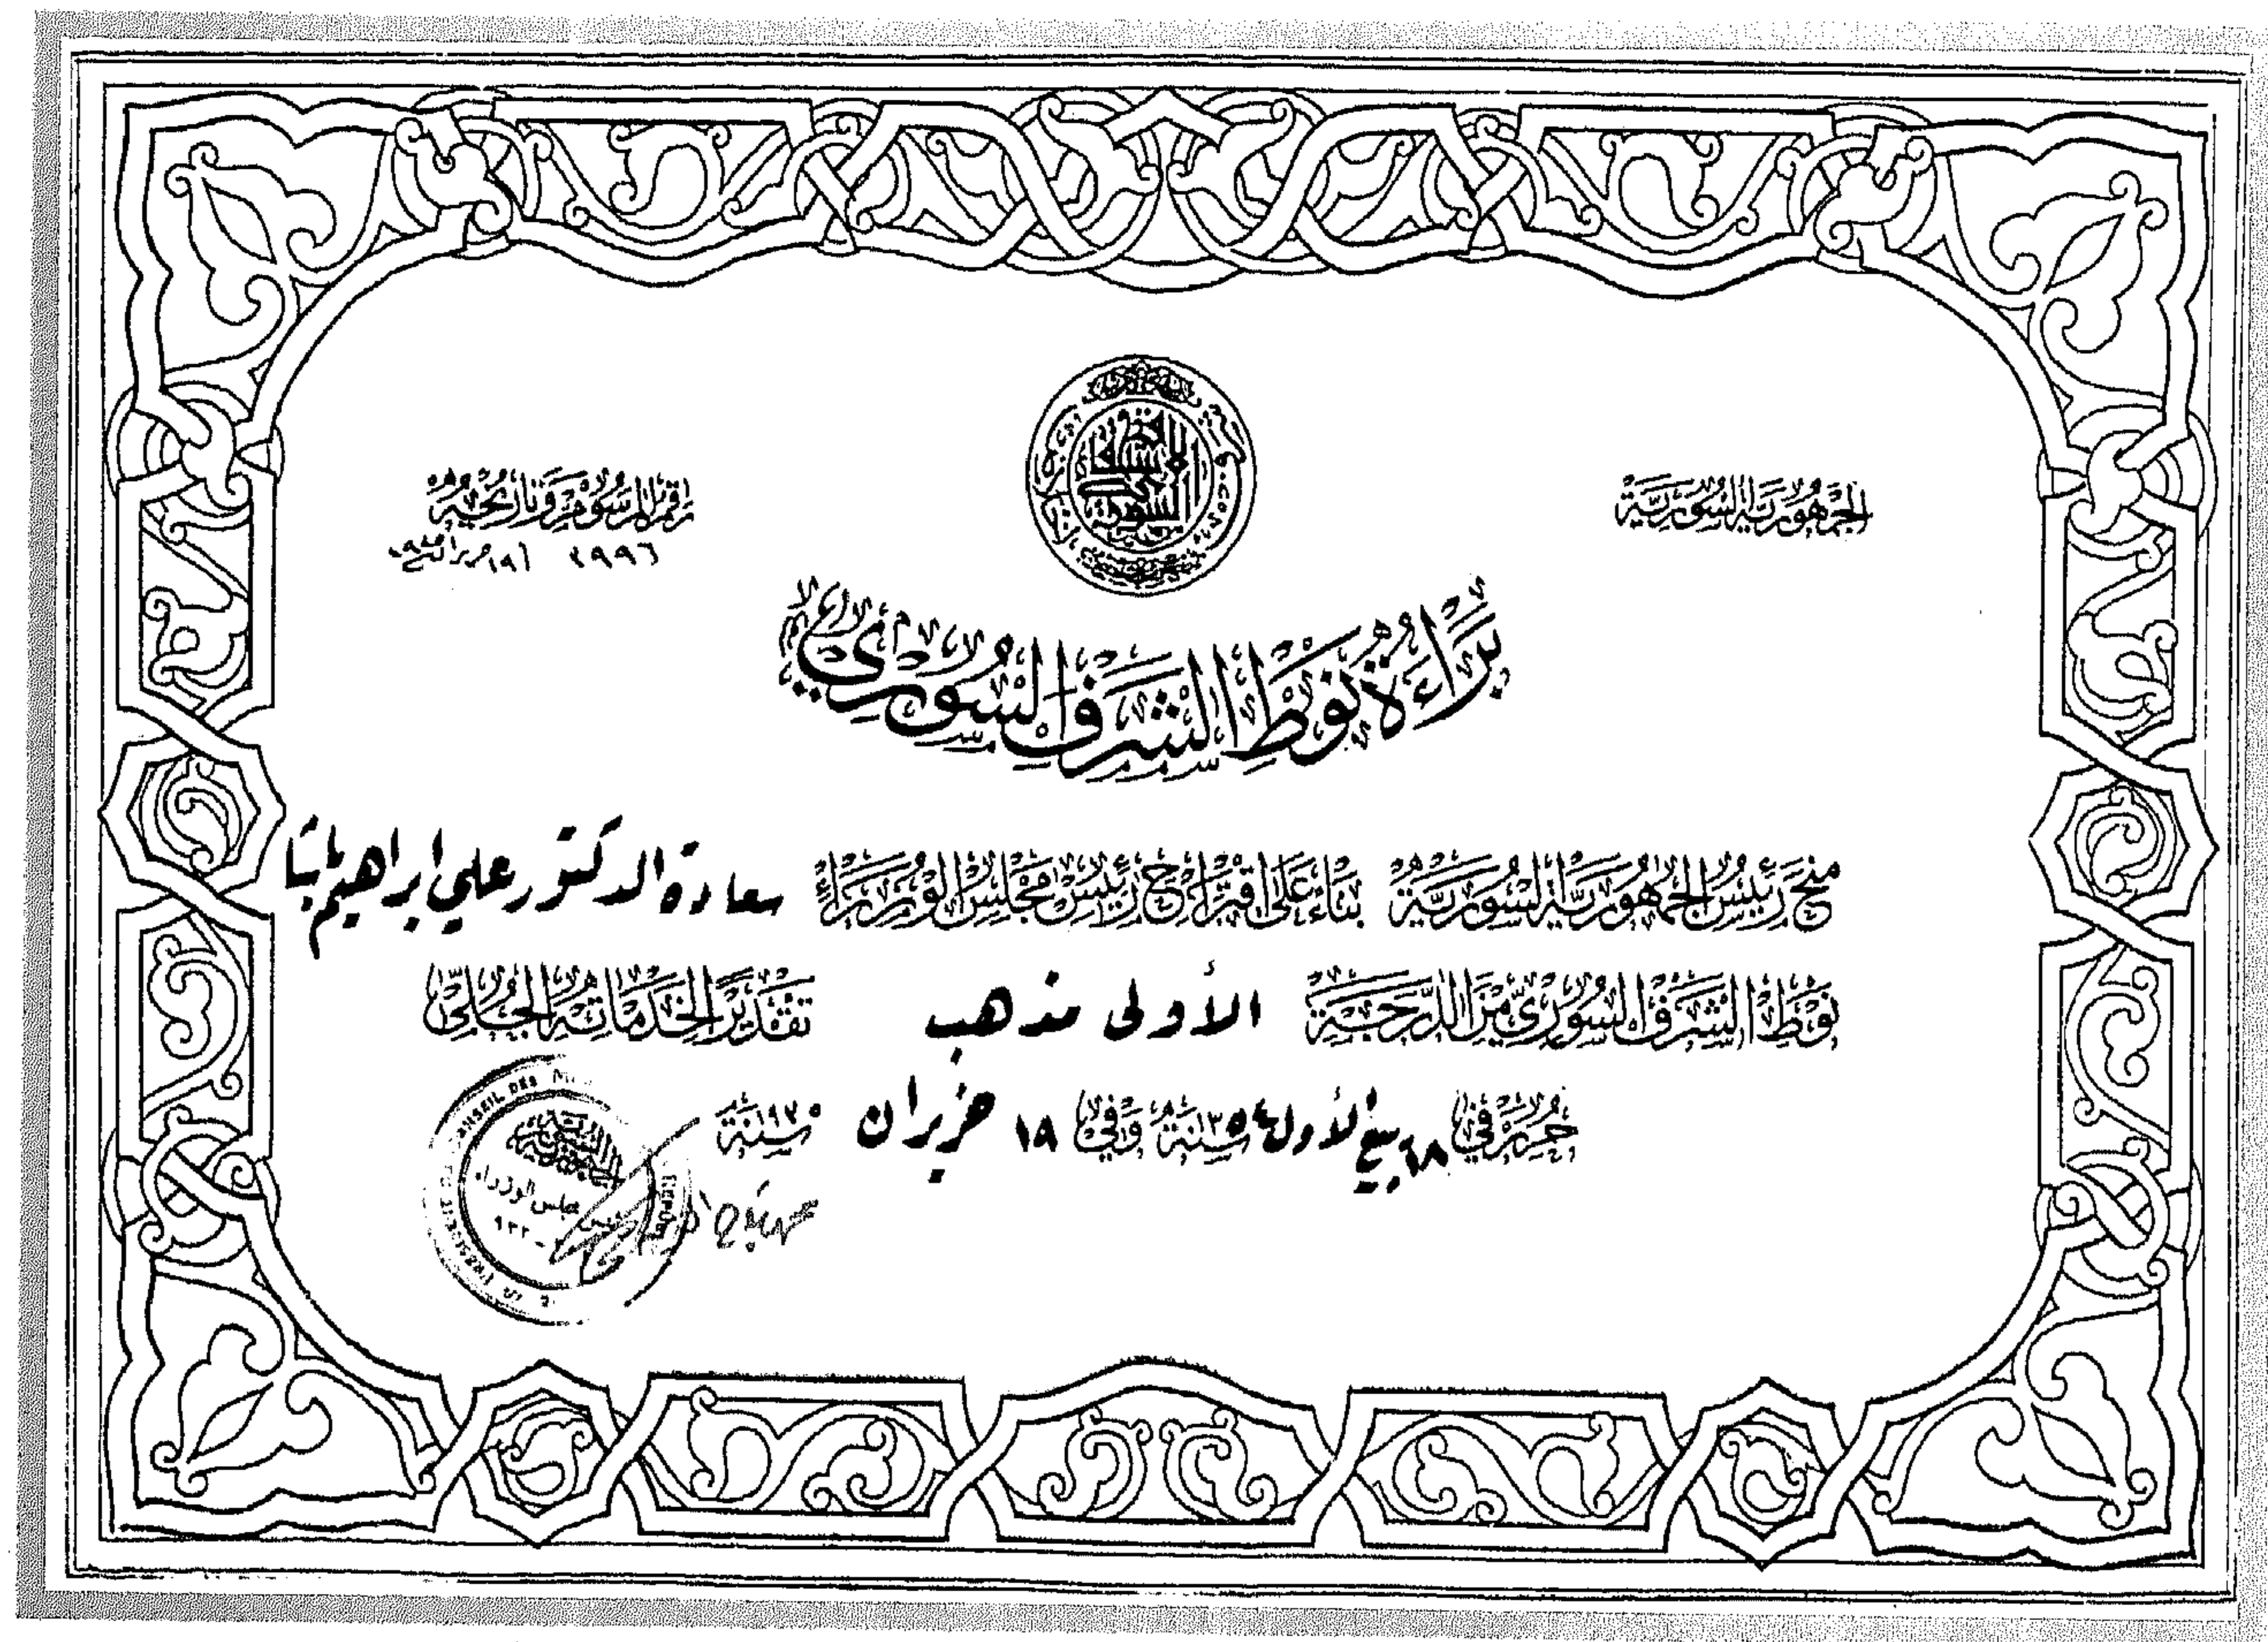 الجمهورية السورية
رقم المرسوم وتاريخه
٢٩٩٦
براءة نوط الشرف السوري
منح رئيس الجمهورية السورية بناء على اقتراح رئيس مجلس الوزراء سعادة الدكتور علي ابراهيم باشا
نوط الشرف السوري من الدرجة الأولى مذهب تقديراً لخدماته الجلى
حرر في ربيع الأول سنة ١٣٥٤ وفي ١٨ حزيران سنة
مجلس الوزراء